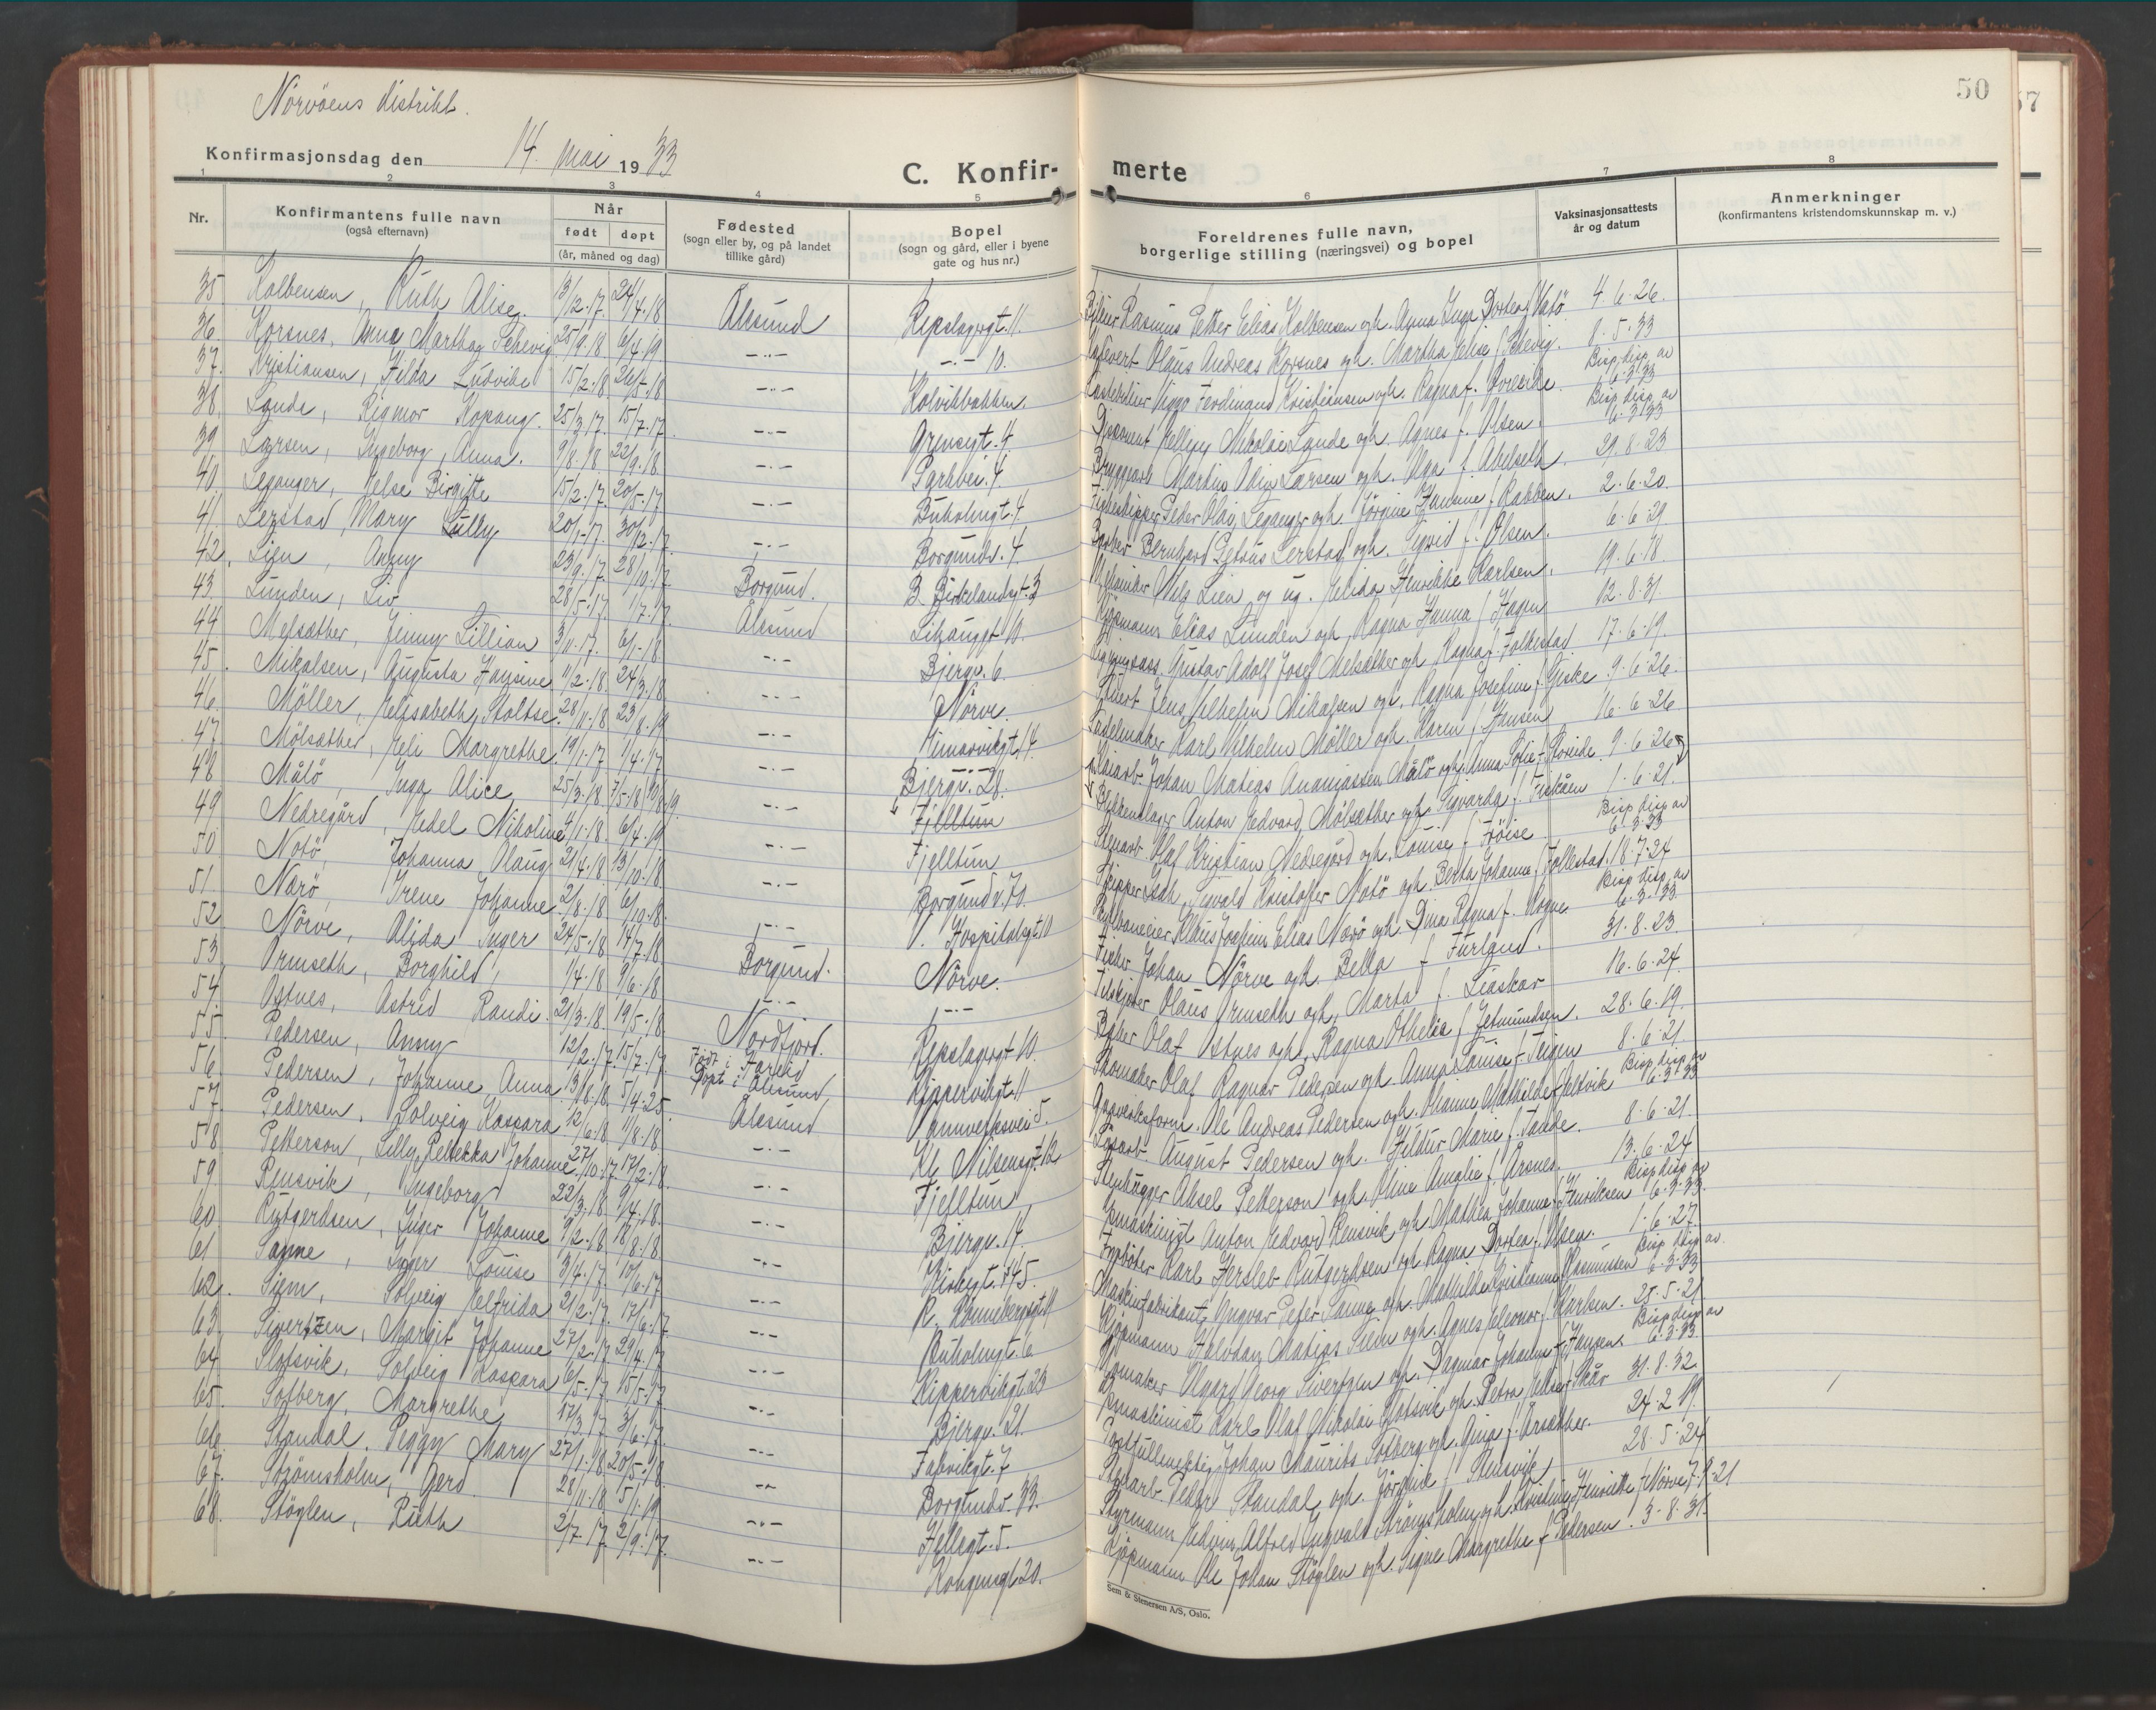 Nørvøens distrikt.
50
57
Konfirmasjonsdag den 14. mai 1933
C. Konfir- merte
1 2 3 4 5 6 7 8
Nr.
Konfirmantens fulle navn
(også efternavn)
Når
født døpt
(år, måned og dag)
Fødested
(sogn eller by, og på landet
tillike gård)
Bopel
(sogn og gård, eller i byene
gate og hus nr.)
Foreldrenes fulle navn,
borgerlige stilling (næringsvei) og bopel
Vaksinasjonsattests
år og datum
Anmerkninger
(konfirmantens kristendomskunnskap m. v.)
35 Kolbensen, Ruth Alise. 13/12.17. 24/4.18 Ålesund Repslagergt. 11. Rasmus Petter Elias Kolbensen og h. Anna Inga Dortea f. Vatø 4.6.26.
36. Korsnes, Anna Martha Schevig 25/9.18 6/4.19 -"- -"- 10. Olaus Andreas Korsnes og h. Martha Elise f. Schevig. 8.5.33
37. Kristiansen, Hilda Ludvikke 15/2.18. 26/5.18 -"- Kolvikbakken. Viggo Ferdinand Kristiansen og h. Ragna f. Bisp. disp. av 6.3.33
38. Lande, Rigmor Kopang. 25/3.17. 15/7.17. -"- Grensegt. 4. Nikolai Lande og h. Agnes f. Olsen. Bisp. disp. av 6.3.33
39 Larsen, Ingeborg, Anna. 9/8.18. 22/9.18. -"- Parkvei. 4. Martin Odin Larsen og h. Olga f. Abelseth. 29.8.23
40. Leganger, Else Birgitte 15/2.17. 20/5.17 -"- Buholmgt. 4. Peter Olai Leganger og h. Jørgine Hansine f. Rabben. 2.6.20.
41. Lerstad, Mary Lully 20/1.17. 30/12.17. -"- Borgundv. 4. Baker Bernhard Petrus Lerstad og h. Sigrid f. Olsen. 6.6.29
42. Lien, Anny 23/9.17. 28/10.17. Borgund. B. Birkelandsgt. 3 Nils Lien og ug. Elida Henrikke Karlsen. 19.6.18.
43. Lunden, Liv 28/5.17. 1/7.17. Ålesund Lihauggt 10. Kjøpmann Elias Lunden og h. Ragna Hanna f. Hagen 12.8.31.
44 Melsæther, Jenny Lillian 3/11.17. 6/1.18 -"- Bjergv. 6. Gustav Adolf Josef Melsæther og h. Ragna f. Folkestad. 17.6.19.
45. Mikalsen, Augusta Hansine 11/2.18. 24/3.18. -"- Nørve. Jens Vilhelm Mikalsen og h. Ragna Josefine f. Giske 9.6.26.
46. Møller, Elisabeth Stoltse. 28/11.18 23/8.19 -"- Karl Vilhelm Møller og h. Karen f. Hansen 16.6.26
47. Mølsæther, Eli Margrethe 19/1.17 1/4.17 -"- Bjergv. 28. Johan Matias Ananiassen Målø og h. Anna Sofie f. 9.6.26
48 Målø, Inga Alice 25/3.18. 7/5.18 -"- Fjelltun Blikkenslager Anton Edvard Mølsæther og h. Sigvarda f. Fiskåen 1.6.21.
49 Nedregård, Edel Nikoline 4/1.18. 6/4.19. -"- Fjelltun Olaf Kristian Nedregård og h. Louise f. Bisp. disp. av 6.3.33
50 Notø, Johanna Olaug 21/4.18 13/10.18. -"- Borgundv. 70. Sigvald Kristoffer Notø og h. Berta Johanne f. Follestad. 18.7.24
51. Nærø, Irene Johanne 2/8.18. 6/10.18. -"- Hospitalsgt. 10 Klaus Joakim Elias Nærø og h. Dina Ragna f. Bisp. disp. av 6.3.33.
52. Nørve, Alida Inger 24/5.18 14/7.18 Borgund. Nørve. Fisker Johan Nørve og h. Bella f. Furlund. 31.8.23.
53. Ormseth, Borghild, 1/4.18 9/6.18 -"- -"- Olaus Ormseth og h. Marta f. Liaskar 16.6.24.
54. Ostnes, Astrid Randi. 21/3.18. 19/5.18. Nordfjord. Repslagergt 10. Baker Olaf Ostnes og h. Ragna Othelie f. Jetmundsen. 28.6.19.
55. Pedersen, Anny 12/2.17. 15/7.17 Født i Døpt i Ålesund Kippervikgt. 11 Skomaker Olaf Ragnar Pedersen og h. Anna Louise f. Teigen 8.6.21.
56 Pedersen, Johanne Anna 13/8.18. 5/4.25. Ålesund 5. Ole Andreas Pedersen og h. Johanne Mathilde f. Bisp. disp. av 6.3.33
57. Pedersen, Solveig Kaspara 12/6.18 11/8.18 -"- Kl. Nilsensgt. 12 August Pedersen og h. Hildur Marie f. Tande. 8.6.21.
58 Petterson, Lilly Rebekka Johanne. 27/10.17. 17/2.18. -"- Fjelltun Stenhugger Aksel Petterson og h. Oline Amalie f. Aarsnes. 13.6.24
59. Rensvik, Ingeborg 22/3.18. 9/4.18. -"- Bjergv. 17. Anton Edvard Rensvik og h. Mathea Johanne f. Henriksen Bisp. disp. av 6.3.33.
60. Rutgerdsen, Inger Johanne 9/2.18. 18/8.18. -"- Karl Hersleb Rutgerdsen og h. Ragna Dortea f. Olsen. 1.6.27.
61 Sanne, Inger Louise 3/4.17. 10/6.17 -"- R. Rønnebergsgt. 11 Maskinfabrikant Ingvar Peter Sanne og h. Mathilde Kristianne f. Rasmussen Bisp. disp. av. 6.3.33
62. Siem, Solveig Elfrida 21/2.17. 17/6.17 -"- Buholmgt. 6 Kjøpmann Halvdan Matias Siem og h. Agnes Eleonor f. Karlsen. 25.5.21
63. Sivertzen, Margit Johanne 27/2.17. 29/4.17 -"- Kippervikgt. 23 Georg Sivertzen og h. Dagmar Johanne f. Hansen. Bisp. disp. av 6.3.33.
64 Slotsvik, Solveig Kaspara 6/5.17. 15/5.17 -"- Bjergv. 21. Karl Olaf Nikolai Slotsvik og h. Petra Elise f. Skår 31.8.32.
65. Solberg, Margrethe 17/3.17 3/6.17. -"- Postfullmektig Johan Maurits Solberg og h. Gina f. Årsæther. 24.2.19.
66. Standal, Peggy Mary 27/1.18. 20/5.18. -"- Borgundv. 33. Peder Standal og h. Jørgine f. Stensvik 28.5.24
67. Strømsholm, Gerd. 28/11.18 5/1.19 -"- Hellegt. 5. Styrmann Edvin Alfred Ingvald Strømsholm og h. Kristine Henriette f. Nørve 7.9.21
68. Støylen, Ruth 2/7.17. 2/9.17. -"- Kongensgt 20. Kjøpmann Ole Johan Støylen og h. Signe Margrethe f. Pedersen. 3.8.31.
Sem & Stenersen A/S, Oslo.